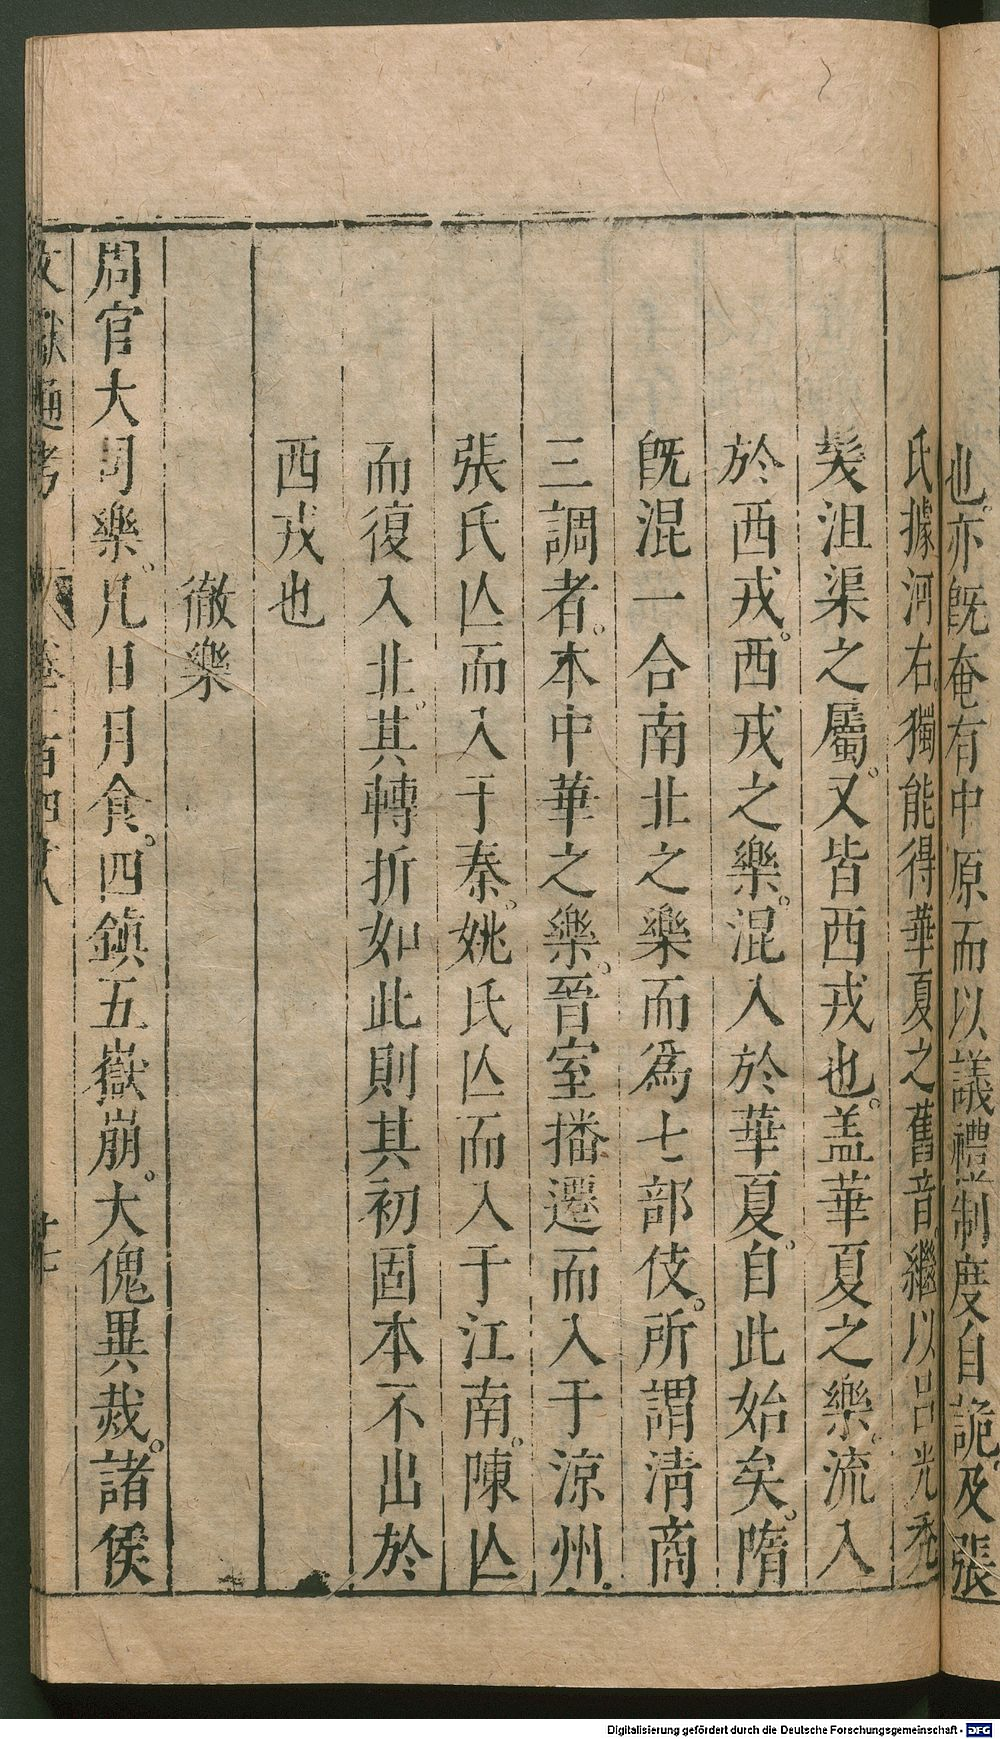 也。亦旣奄有中原而以議禮制度自詭。及張
氏據河右。獨能得華夏之舊音。繼以呂光禿
髮沮渠之屬。又皆西戎也。盖華夏之樂。流入
於西戎。西戎之樂。混入於華夏。自此始矣。隋
旣混一合南北之樂而爲七部伎。所謂淸商
三調者。本中華之樂。晉室播遷而入于涼州。
張氏亾而入于秦。姚氏亾而入于江南。陳亾
而復入北。其轉折如此則其初固本不出於
西戎也
徹樂
周官大司樂。凡日月食。四鎭五嶽崩。大傀異烖。諸侯
文獻通考 卷一百四十八 廿七
Digitalisierung gefördert durch die Deutsche Forschungsgemeinschaft - DFG